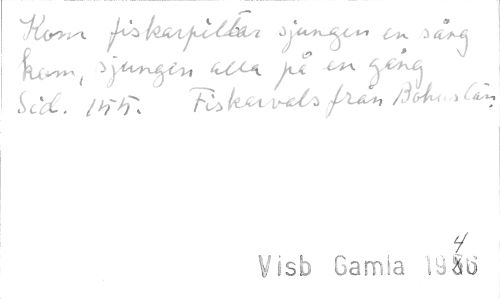 Kom fiskarpiltar sjungen en sång
kom, sjungen alla på en gång
Sid. 155. Fiskarvals från Bohuslän.
Visb Gamla 1946